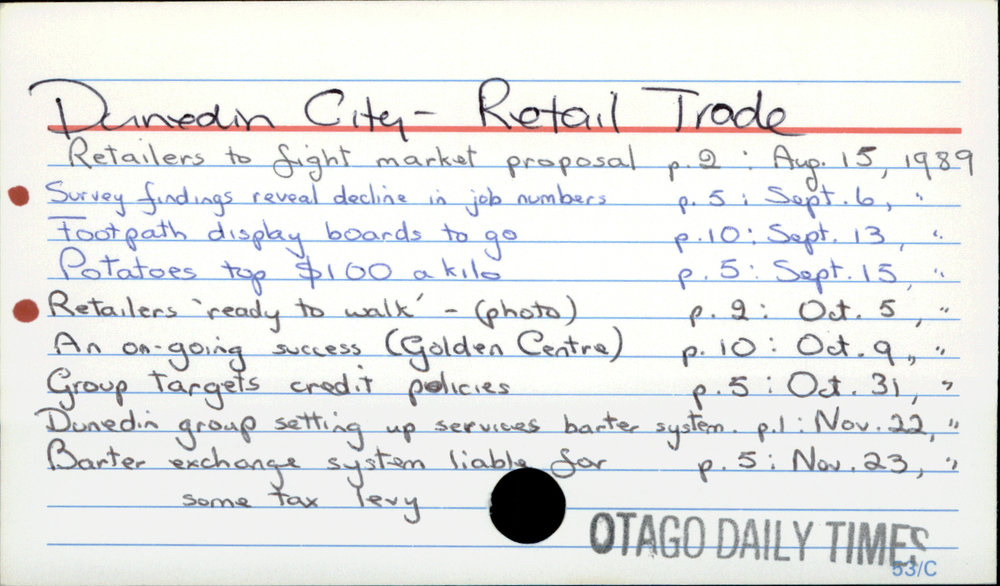 Dunedin City- Retail Trade
Retailers to fight market proposal p.2 : Aug. 15, 1989
Survey findings reveal decline in job numbers p. 5 : Sept. 6, "
Footpath display boards to go p.10: Sept. 13, "
Potatoes top $100 a kilo p. 5: Sept. 15, "
Retailers 'ready to walk' - (photo) p. 2: Oct. 5, "
An on-going success (Golden Centre) p. 10 : Oct. 9, "
Group targets credit policies p.5 : Oct. 31, "
Dunedin group setting up services barter system. p.1 : Nov. 22, "
Barter exchange system liable for p. 5 : Nov. 23, "
some tax levy
OTAGO DAILY TIMES
53/C